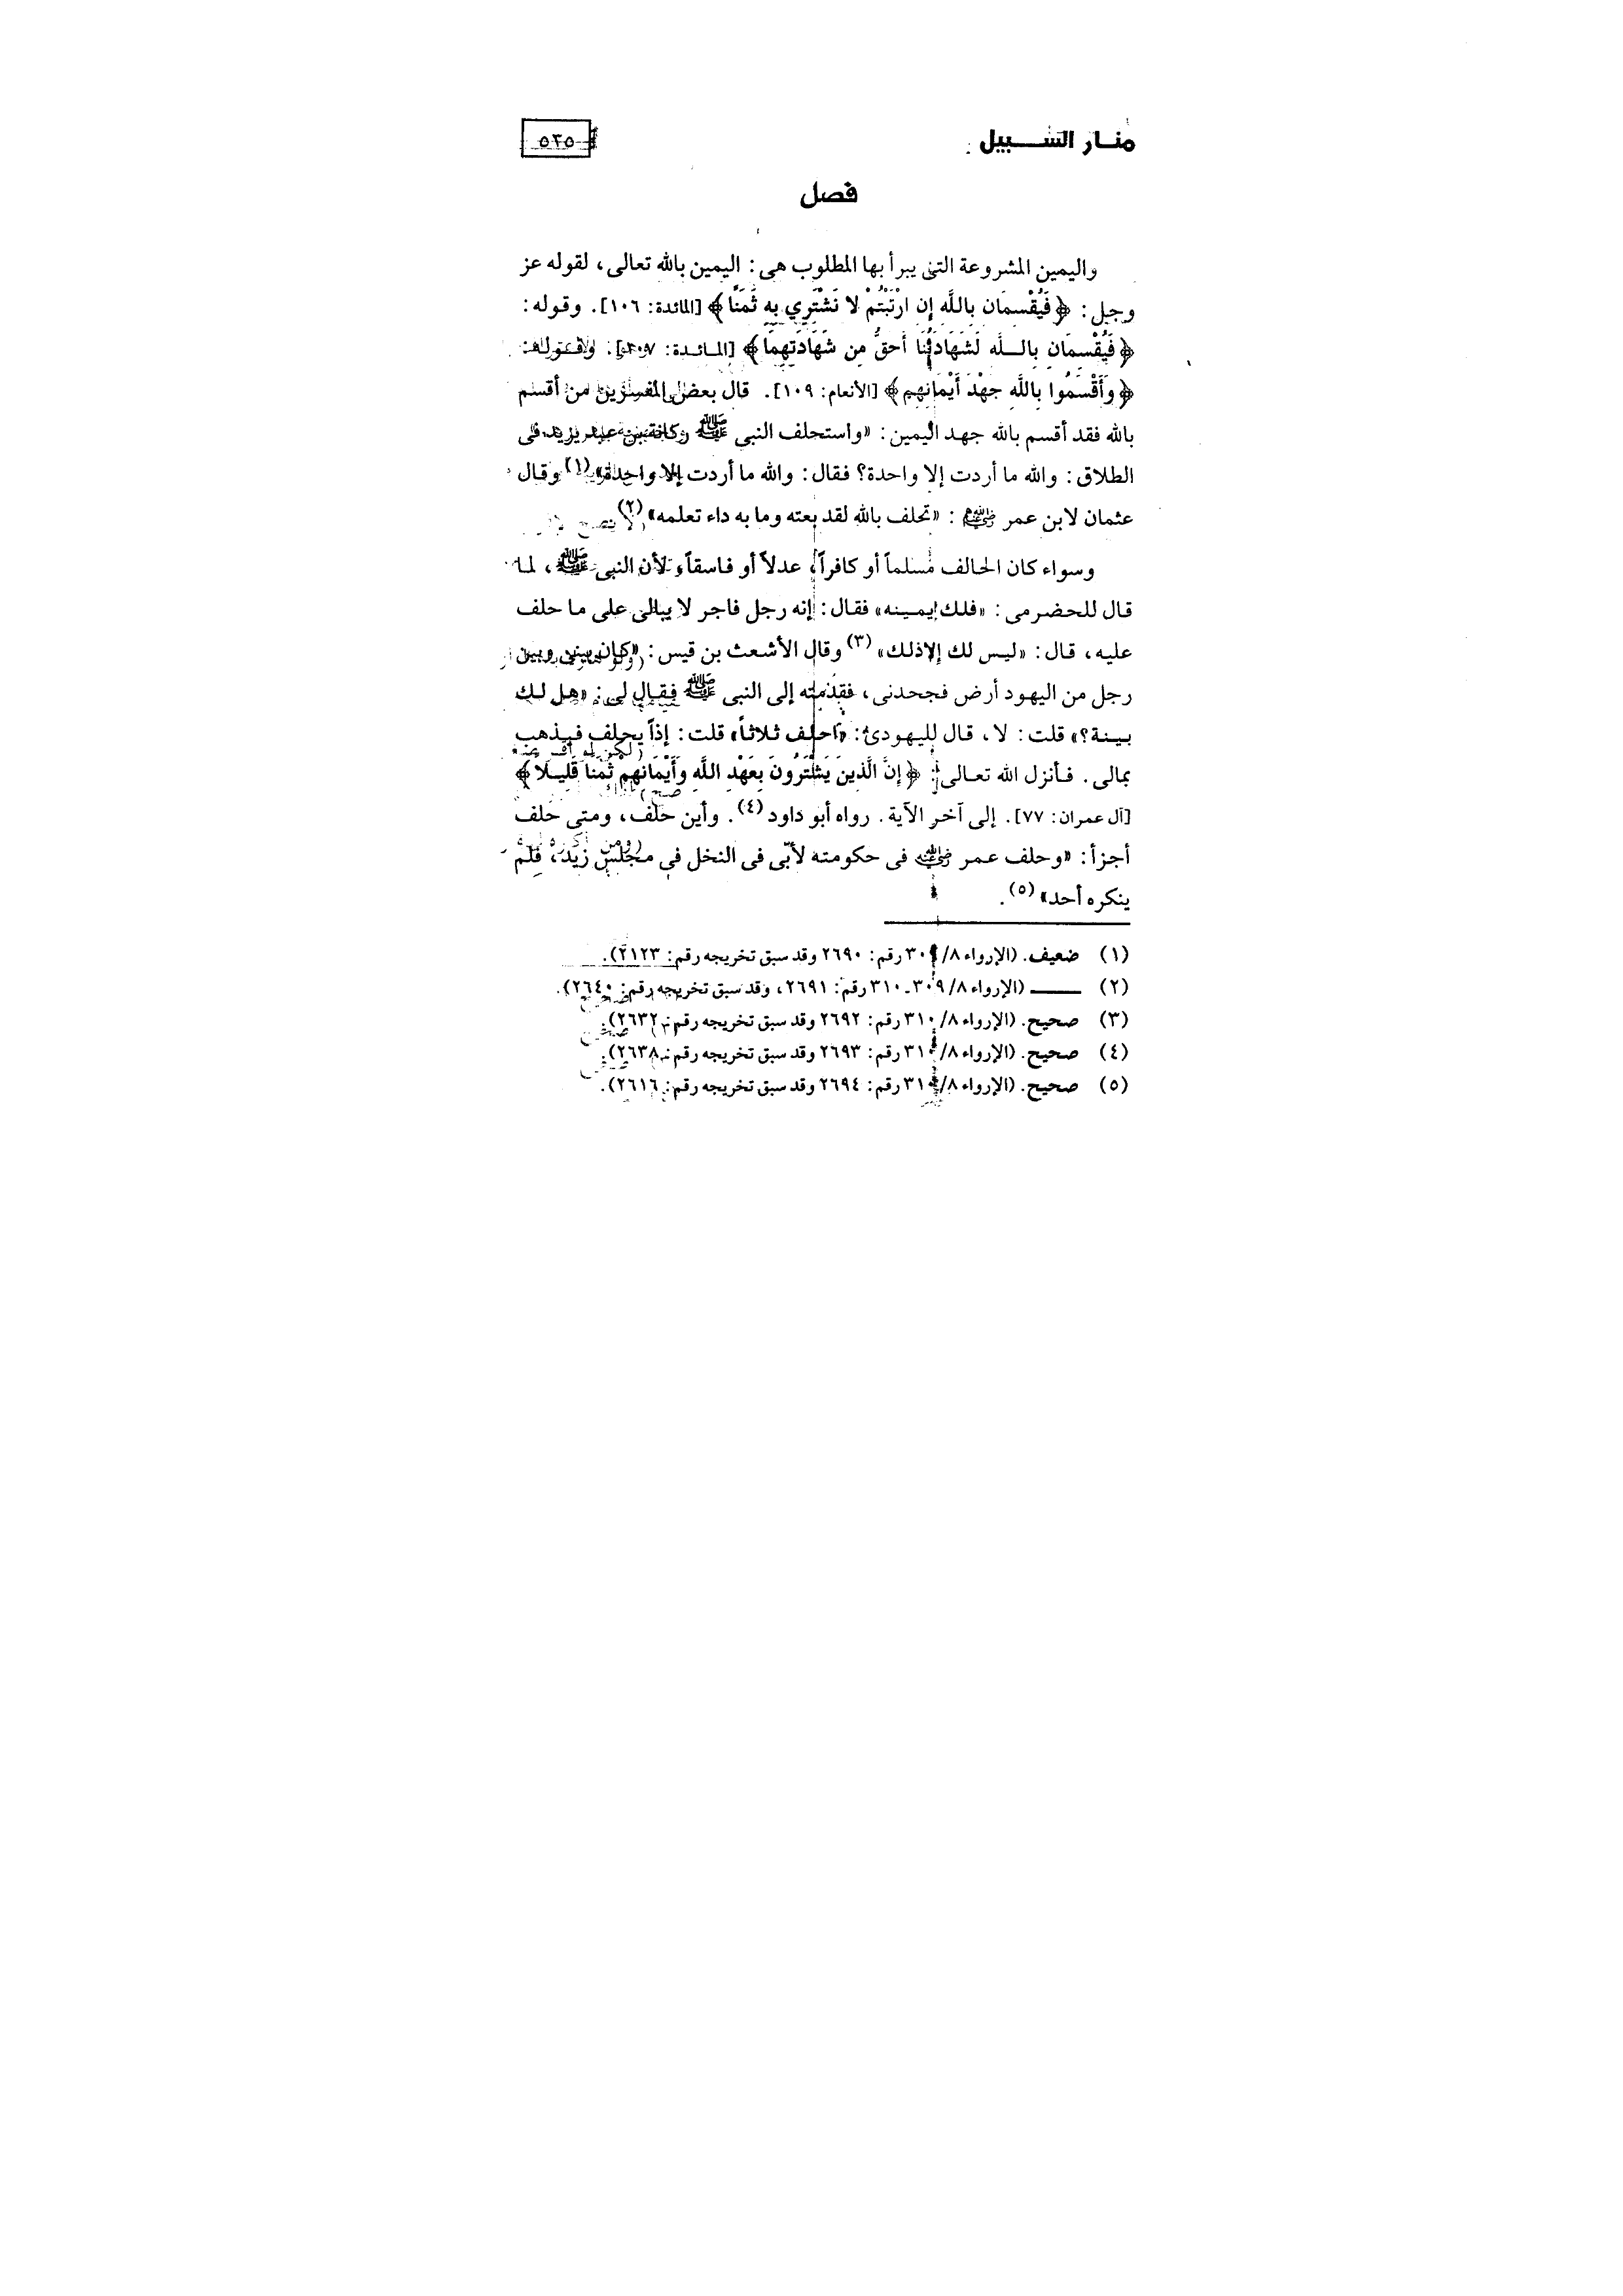 منار السبيل
٥٣٥
فصل
واليمين المشروعة التى يبرأ بها المطلوب هى: اليمين بالله تعالى، لقوله عز
وجل: ﴿فَيُقْسِمَانِ بِاللَّهِ إِن ارْتَبْتُمْ لا نَشْتَرِي بِهِ ثَمَنًا﴾ [المائدة: ١٠٦]. وقوله:
﴿فَيُقْسِمَانِ بِاللَّهِ لَشَهَادَتُنَا أَحَقُّ مِن شَهَادَتِهِمَا﴾ [المائدة: ١٠٧]. وقوله:
﴿وَأَقْسَمُوا بِاللَّهِ جَهْدَ أَيْمَانِهِمْ﴾ [الأنعام: ١٠٩]. قال بعض المفسرين من أقسم
بالله فقد أقسم بالله جهد اليمين: «واستحلف النبى ﷺ ركانة بن عبد يزيد فى
الطلاق: والله ما أردت إلا واحدة؟ فقال: والله ما أردت إلا واحدة»(١) وقال
عثمان لابن عمر رضي الله عنهما: «تحلف بالله لقد بعته وما به داء تعلمه»(٢)
وسواء كان الحالف مسلماً أو كافراً، عدلاً أو فاسقاً، لأن النبى ﷺ، لما
قال للحضرمى: «فلك يمينه» فقال: إنه رجل فاجر لا يبالى على ما حلف
عليه، قال: «ليس لك إلا ذلك»(٣) وقال الأشعث بن قيس: «كان بينى وبين
رجل من اليهود أرض فجحدنى، فقدمته إلى النبى ﷺ فقال لى: «هل لك
بينة؟» قلت: لا، قال لليهودى: «احلف ثلاثاً» قلت: إذاً يحلف فيذهب
بمالى. فأنزل الله تعالى: ﴿إِنَّ الَّذِينَ يَشْتَرُونَ بِعَهْدِ اللَّهِ وَأَيْمَانِهِمْ ثَمَنًا قَلِيلاً﴾
[آل عمران: ٧٧]. إلى آخر الآية. رواه أبو داود(٤). وأين حلف، ومتى حلف
أجزأ: «وحلف عمر رضي الله عنه فى حكومته لأبّى فى النخل فى مجلس زيد، فلم
ينكره أحد»(٥).
(١) ضعيف. (الإرواء ٨/ ٣٠٩ رقم: ٢٦٩٠ وقد سبق تخريجه رقم: ٢١٢٣).
(٢) ــــــ (الإرواء ٨/ ٣٠٩ـ ٣١٠ رقم: ٢٦٩١، وقد سبق تخريجه رقم: ٢٦٤٠).
(٣) صحيح. (الإرواء ٨/ ٣١٠ رقم: ٢٦٩٢ وقد سبق تخريجه رقم: ٢٦٣٢).
(٤) صحيح. (الإرواء ٨/ ٣١٠ رقم: ٢٦٩٣ وقد سبق تخريجه رقم: ٢٦٣٨).
(٥) صحيح. (الإرواء ٨/ ٣١٠ رقم: ٢٦٩٤ وقد سبق تخريجه رقم: ٢٦١٦).